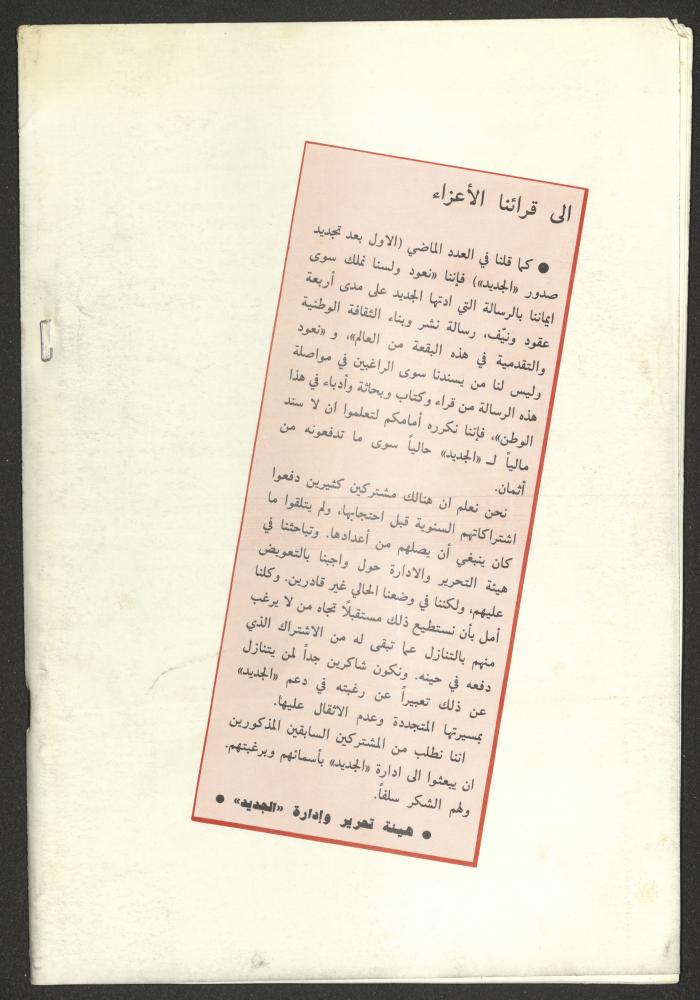 الى قرائنا الأعزاء
● كما قلنا في العدد الماضي (الاول بعد تجديد
صدور «الجديد») فإننا «نعود ولسنا نملك سوى
ايماننا بالرسالة التي ادتها الجديد على مدى أربعة
عقود ونيّف، رسالة نشر وبناء الثقافة الوطنية
والتقدمية في هذه البقعة من العالم»، و «نعود
وليس لنا من يسندنا سوى الراغبين في مواصلة
هذه الرسالة من قراء وكتاب وبحاثة وأدباء في هذا
الوطن»، فإننا نكرره أمامكم لتعلموا ان لا سند
مالياً لـ «الجديد» حالياً سوى ما تدفعونه من
أثمان.
نحن نعلم ان هنالك مشتركين كثيرين دفعوا
اشتراكاتهم السنوية قبل احتجابها، ولم يتلقوا ما
كان ينبغي أن يصلهم من أعدادها. وتباحثنا في
هيئة التحرير والادارة حول واجبنا بالتعويض
عليهم، ولكننا في وضعنا الحالي غير قادرين. وكلنا
أمل بأن نستطيع ذلك مستقبلاً تجاه من لا يرغب
منهم بالتنازل عما تبقى له من الاشتراك الذي
دفعه في حينه. ونكون شاكرين جداً لمن يتنازل
عن ذلك تعبيراً عن رغبته في دعم «الجديد»
بمسيرتها المتجددة وعدم الاثقال عليها.
اننا نطلب من المشتركين السابقين المذكورين
ان يبعثوا الى ادارة «الجديد» بأسمائهم وبرغبتهم.
ولهم الشكر سلفاً.
● هيئة تحرير وإدارة «الجديد» ●